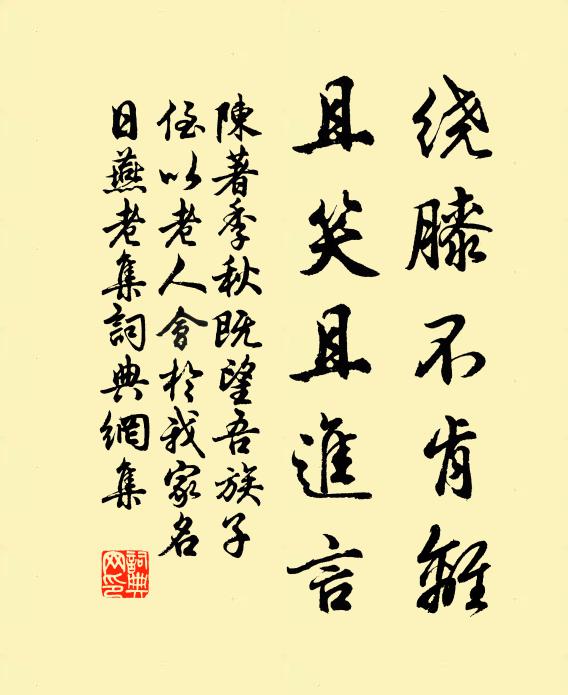 绕膝不肯離
且笑且進言
陳著季秋既望吾族子
侄以老人會於我家名
日燕老集詞典網集
詞典网印